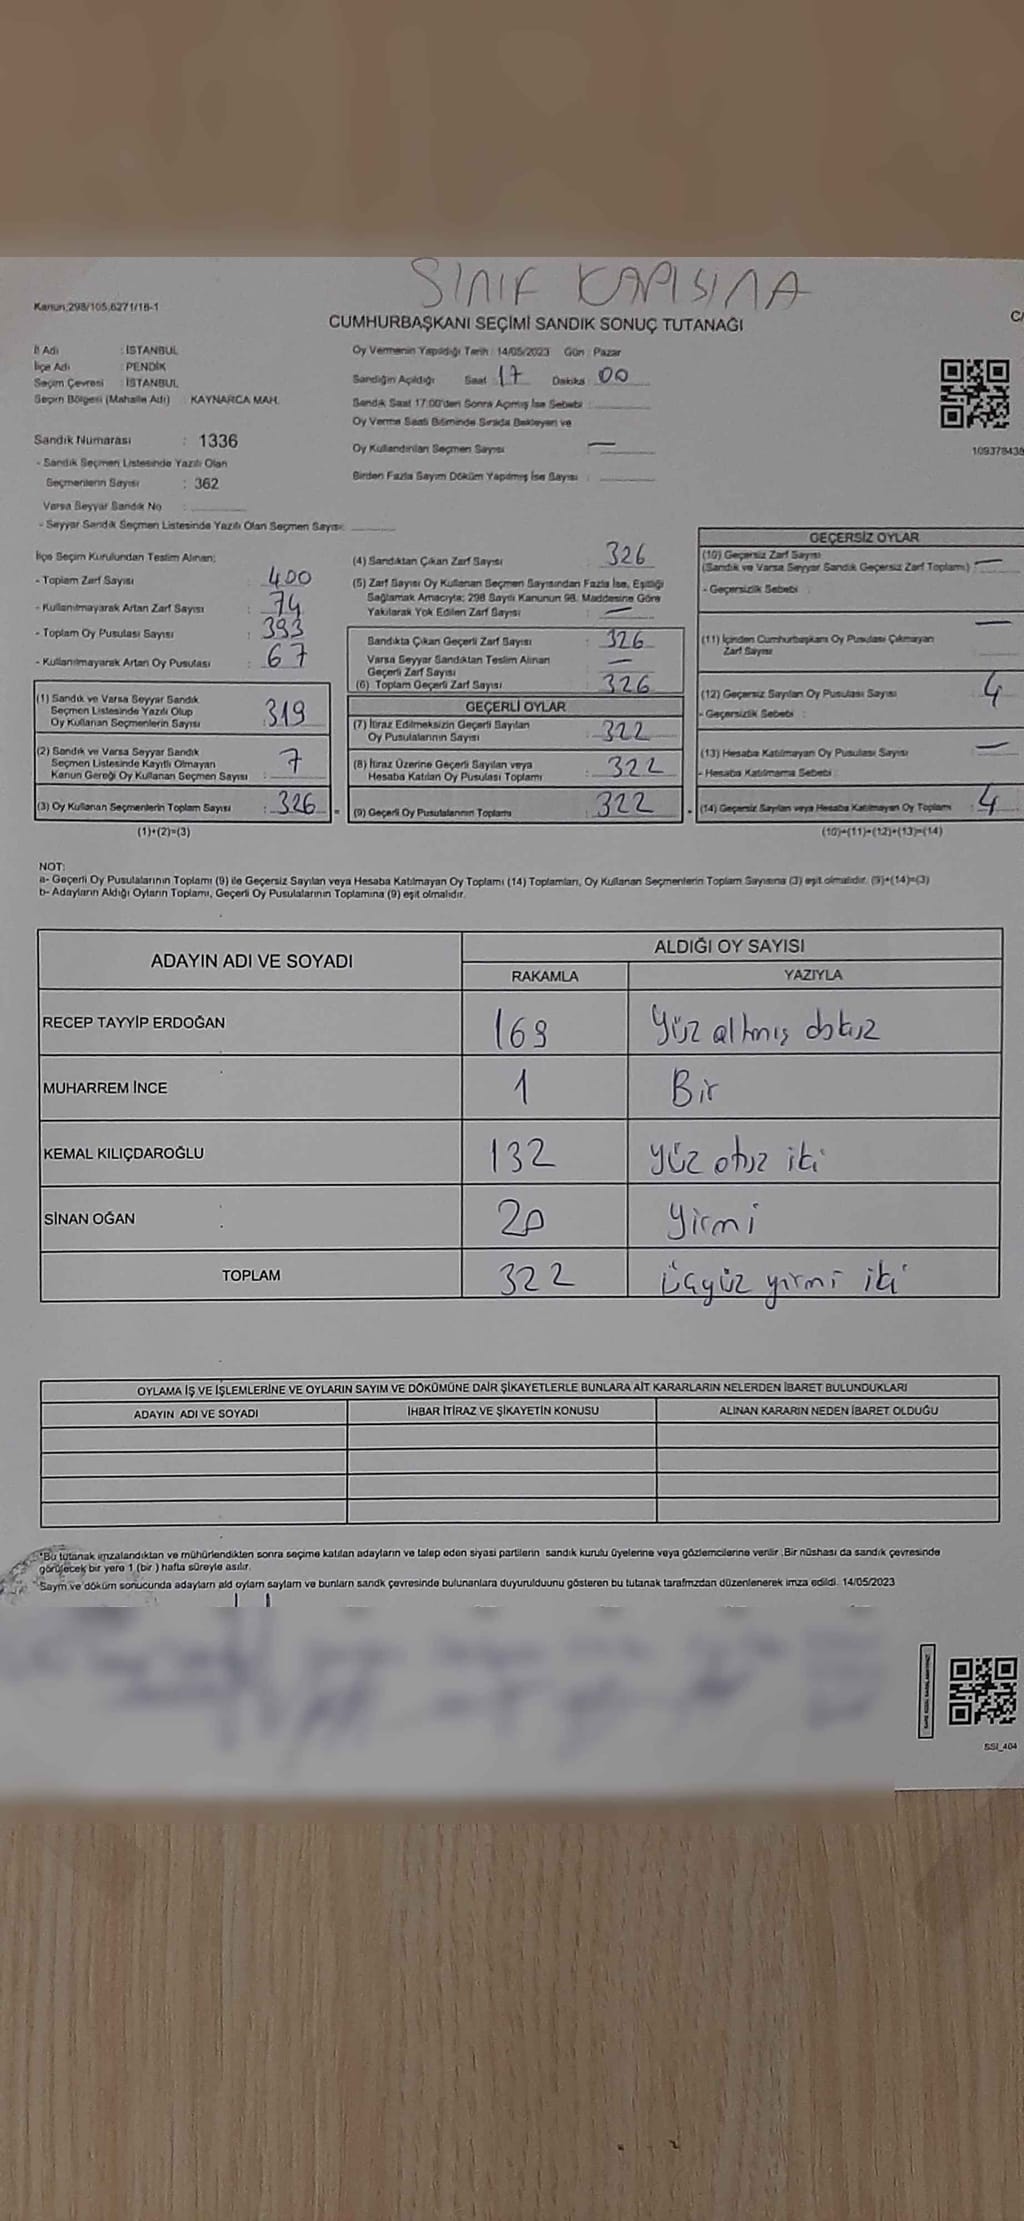 SINIF KAPISINA
Kanun:298/105,6271/16-1
CUMHURBAŞKANI SEÇİMİ SANDIK SONUÇ TUTANAĞI
C/
İl Adı : İSTANBUL
İlçe Adı : PENDİK
Seçim Çevresi : İSTANBUL
Seçim Bölgesi (Mahalle Adı) : KAYNARCA MAH.
Oy Vermenin Yapıldığı Tarih : 14/05/2023 Gün : Pazar
Sandığın Açıldığı Saat 17 Dakika 00
Sandık Saat 17:00'den Sonra Açımış İse Sebebi :
Oy Verme Saati Bitiminde Sırada Bekleyen ve
Oy Kullandırılan Seçmen Sayısı : —
Birden Fazla Sayım Döküm Yapılmış İse Sayısı :
109378438
Sandık Numarası : 1336
- Sandık Seçmen Listesinde Yazılı Olan
Seçmenlerin Sayısı : 362
Varsa Seyyar Sandık No :
- Seyyar Sandık Seçmen Listesinde Yazılı Olan Seçmen Sayısı:
İlçe Seçim Kurulundan Teslim Alınan;
- Toplam Zarf Sayısı : 400
- Kullanılmayarak Artan Zarf Sayısı : 74
- Toplam Oy Pusulası Sayısı : 393
- Kullanılmayarak Artan Oy Pusulası : 67
(1) Sandık ve Varsa Seyyar Sandık
Seçmen Listesinde Yazılı Olup
Oy Kullanan Seçmenlerin Sayısı : 319
(2) Sandık ve Varsa Seyyar Sandık
Seçmen Listesinde Kayıtlı Olmayan
Kanun Gereği Oy Kullanan Seçmen Sayısı : 7
(3) Oy Kullanan Seçmenlerin Toplam Sayısı : 326
(1)+(2)=(3)
(4) Sandıktan Çıkan Zarf Sayısı : 326
(5) Zarf Sayısı Oy Kullanan Seçmen Sayısından Fazla İse, Eşitliği
Sağlamak Amacıyla; 298 Sayılı Kanunun 98. Maddesine Göre
Yakılarak Yok Edilen Zarf Sayısı : —
Sandıkta Çıkan Geçerli Zarf Sayısı : 326
Varsa Seyyar Sandıktan Teslim Alınan
Geçerli Zarf Sayısı : —
(6) Toplam Geçerli Zarf Sayısı : 326
GEÇERLİ OYLAR
(7) İtiraz Edilmeksizin Geçerli Sayılan
Oy Pusulalarının Sayısı : 322
(8) İtiraz Üzerine Geçerli Sayılan veya
Hesaba Katılan Oy Pusulası Toplamı : 322
= (9) Geçerli Oy Pusulalarının Toplamı : 322
GEÇERSİZ OYLAR
(10) Geçersiz Zarf Sayısı
(Sandık ve Varsa Seyyar Sandık Geçersiz Zarf Toplamı) : —
- Geçersizlik Sebebi :
(11) İçinden Cumhurbaşkanı Oy Pusulası Çıkmayan
Zarf Sayısı —
(12) Geçersiz Sayılan Oy Pusulası Sayısı 4
- Geçersizlik Sebebi :
(13) Hesaba Katılmayan Oy Pusulası Sayısı —
- Hesaba Katılmama Sebebi :
(14) Geçersiz Sayılan veya Hesaba Katılmayan Oy Toplamı : 4
(10)+(11)+(12)+(13)=(14)
NOT:
a- Geçerli Oy Pusulalarının Toplamı (9) ile Geçersiz Sayılan veya Hesaba Katılmayan Oy Toplamı (14) Toplamları, Oy Kullanan Seçmenlerin Toplam Sayısına (3) eşit olmalıdır. (9)+(14)=(3)
b- Adayların Aldığı Oyların Toplamı, Geçerli Oy Pusulalarının Toplamına (9) eşit olmalıdır.
ADAYIN ADI VE SOYADI
ALDIĞI OY SAYISI
RAKAMLA YAZIYLA
RECEP TAYYİP ERDOĞAN 169 Yüz altmış dokuz
MUHARREM İNCE 1 Bir
KEMAL KILIÇDAROĞLU 132 yüz otuz iki
SİNAN OĞAN 20 Yirmi
TOPLAM 322 üçyüz yirmi iki
OYLAMA İŞ VE İŞLEMLERİNE VE OYLARIN SAYIM VE DÖKÜMÜNE DAİR ŞİKAYETLERLE BUNLARA AİT KARARLARIN NELERDEN İBARET BULUNDUKLARI
ADAYIN ADI VE SOYADI İHBAR İTİRAZ VE ŞİKAYETİN KONUSU ALINAN KARARIN NEDEN İBARET OLDUĞU
*Bu tutanak imzalandıktan ve mühürlendikten sonra seçime katılan adayların ve talep eden siyasi partilerin sandık kurulu üyelerine veya gözlemcilerine verilir .Bir nüshası da sandık çevresinde
görülecek bir yere 1 (bir ) hafta süreyle asılır.
Sayım ve döküm sonucunda adayların ald oyların sayıların ve bunların sandk çevresinde bulunanlara duyurulduunu gösteren bu tutanak tarafmzdan düzenlenerek imza edildi. 14/05/2023
SSI_404